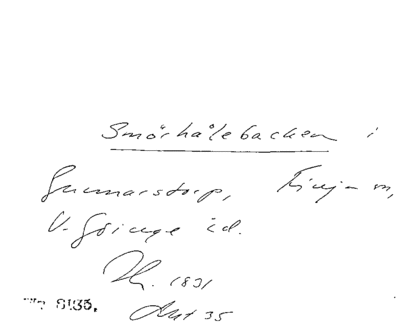 Smörhålebacken i
Gunnarstorp, Finja sn,
V. Göinge hd.
1891
35